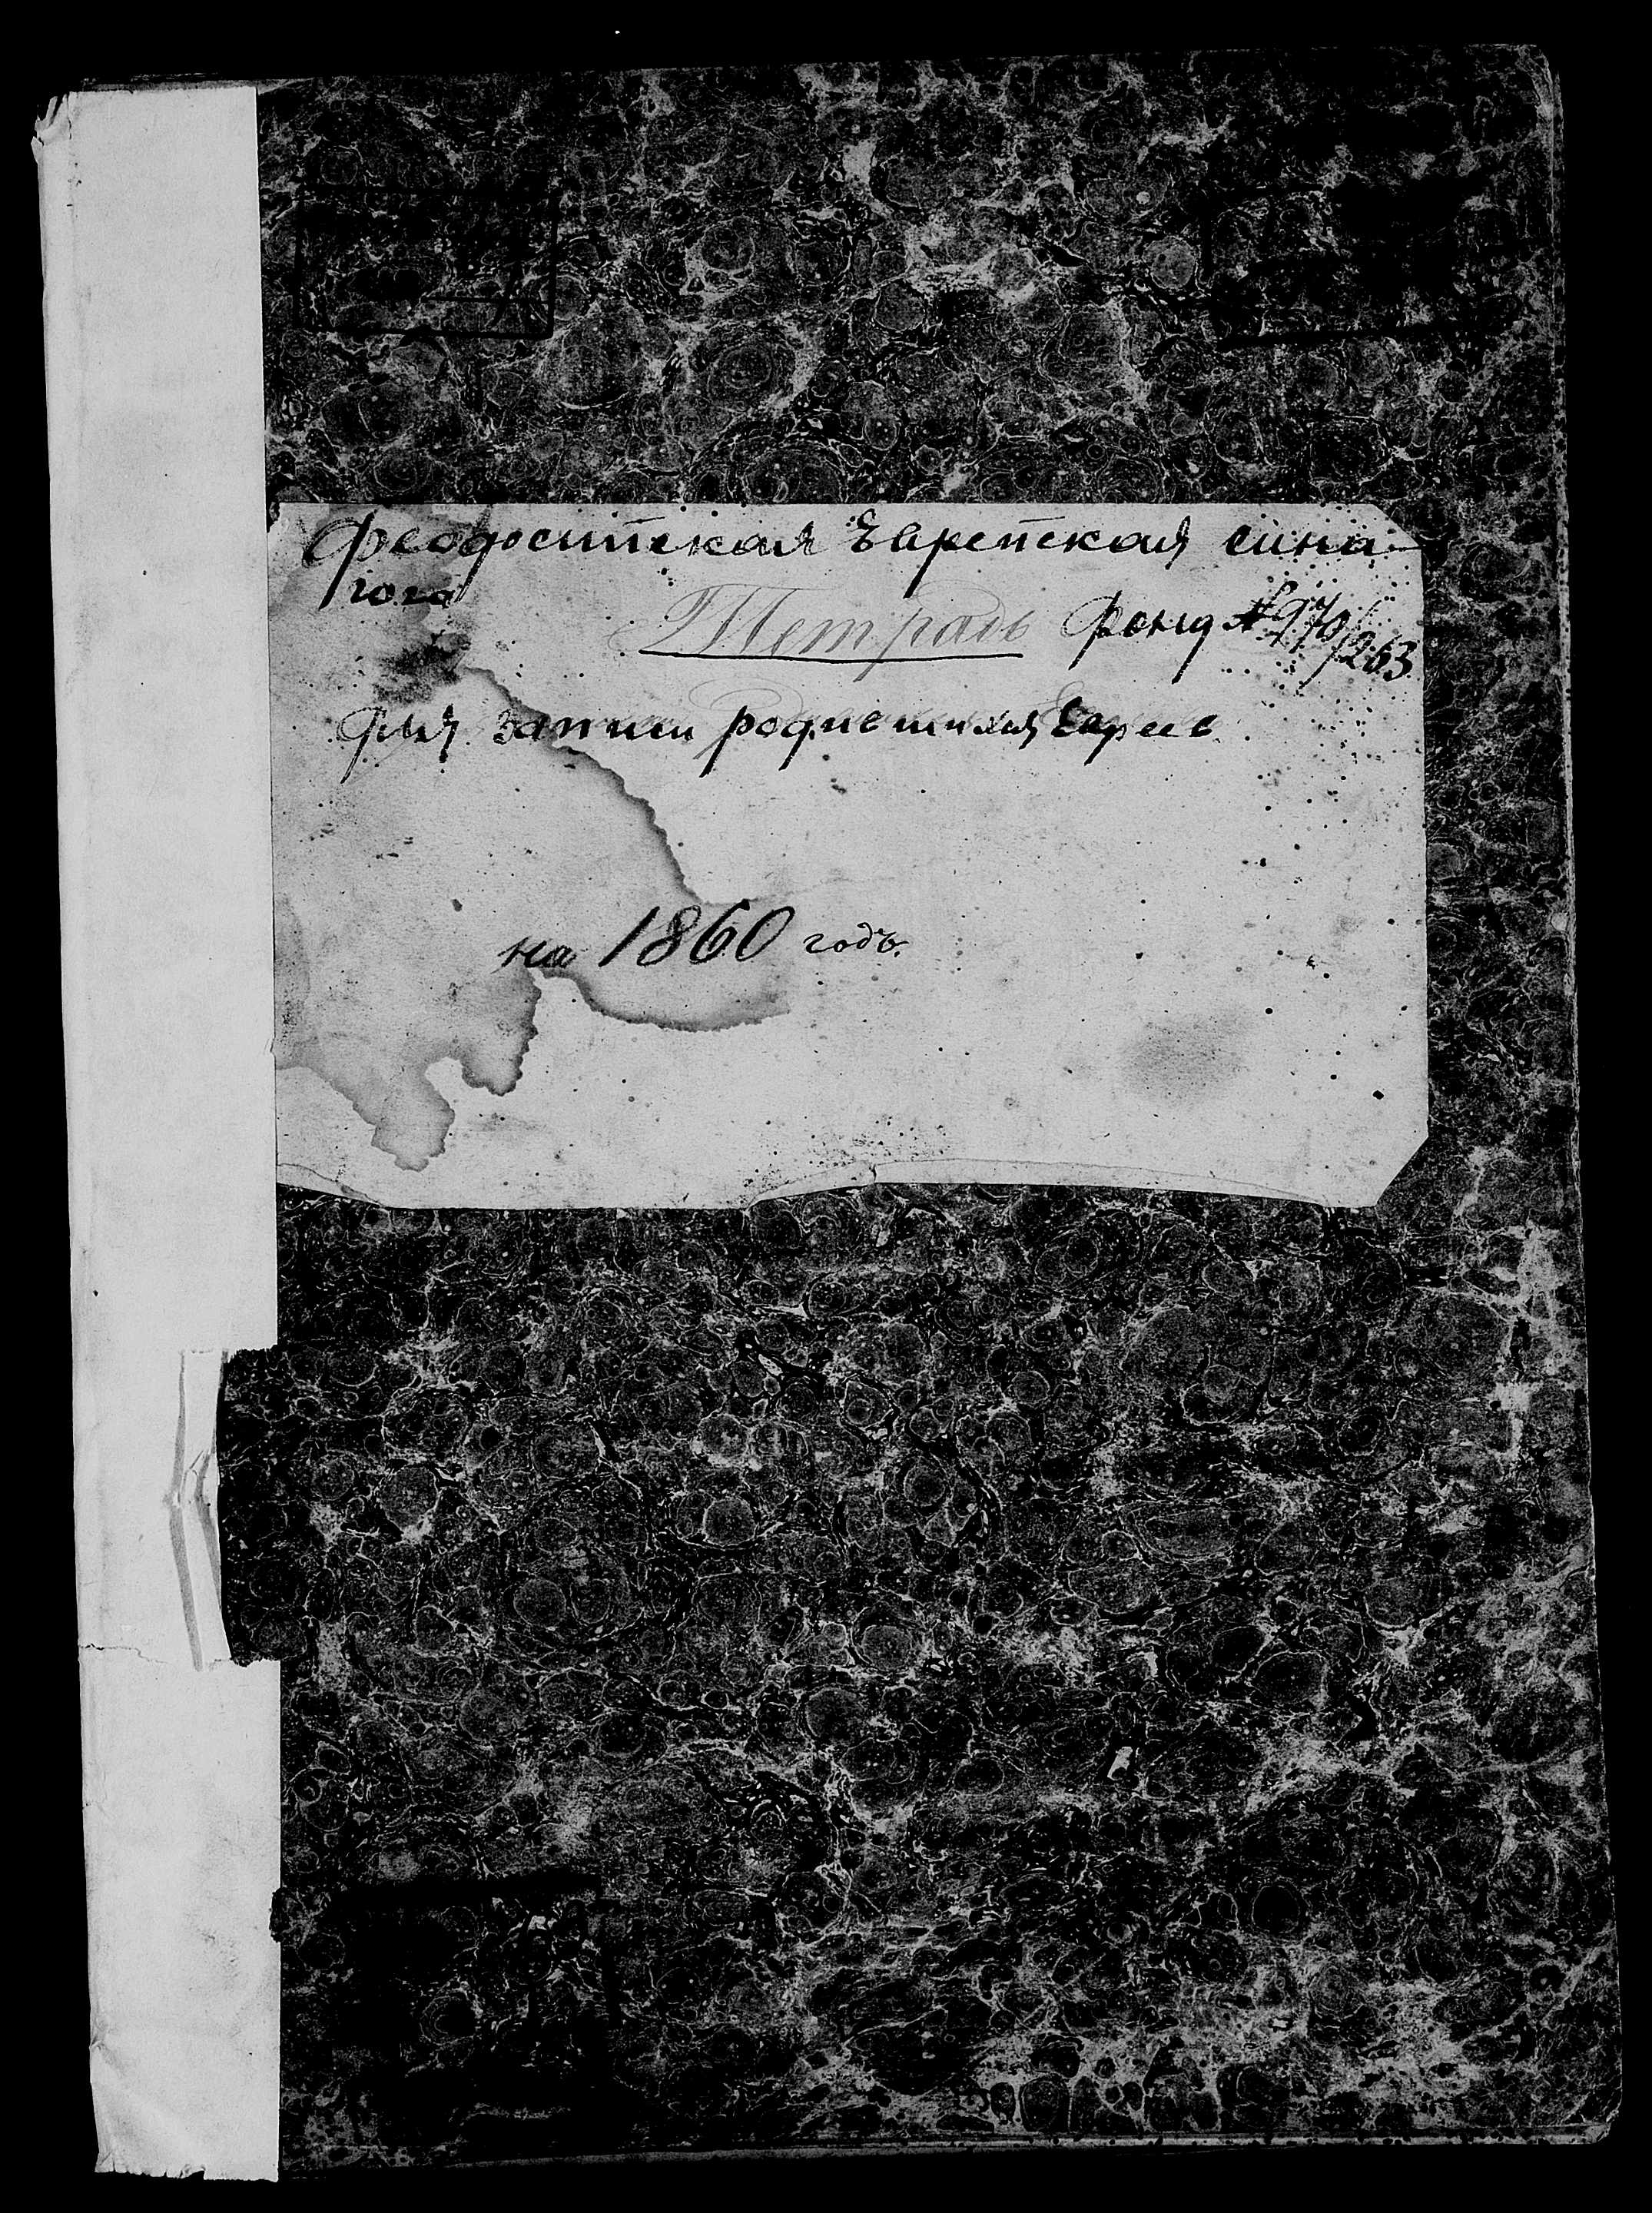 Феодосийская Еврейская сина-
гога
Тетрадь Фонд № 970/263
Для записи родившихся Евреев
на 1860 годъ.